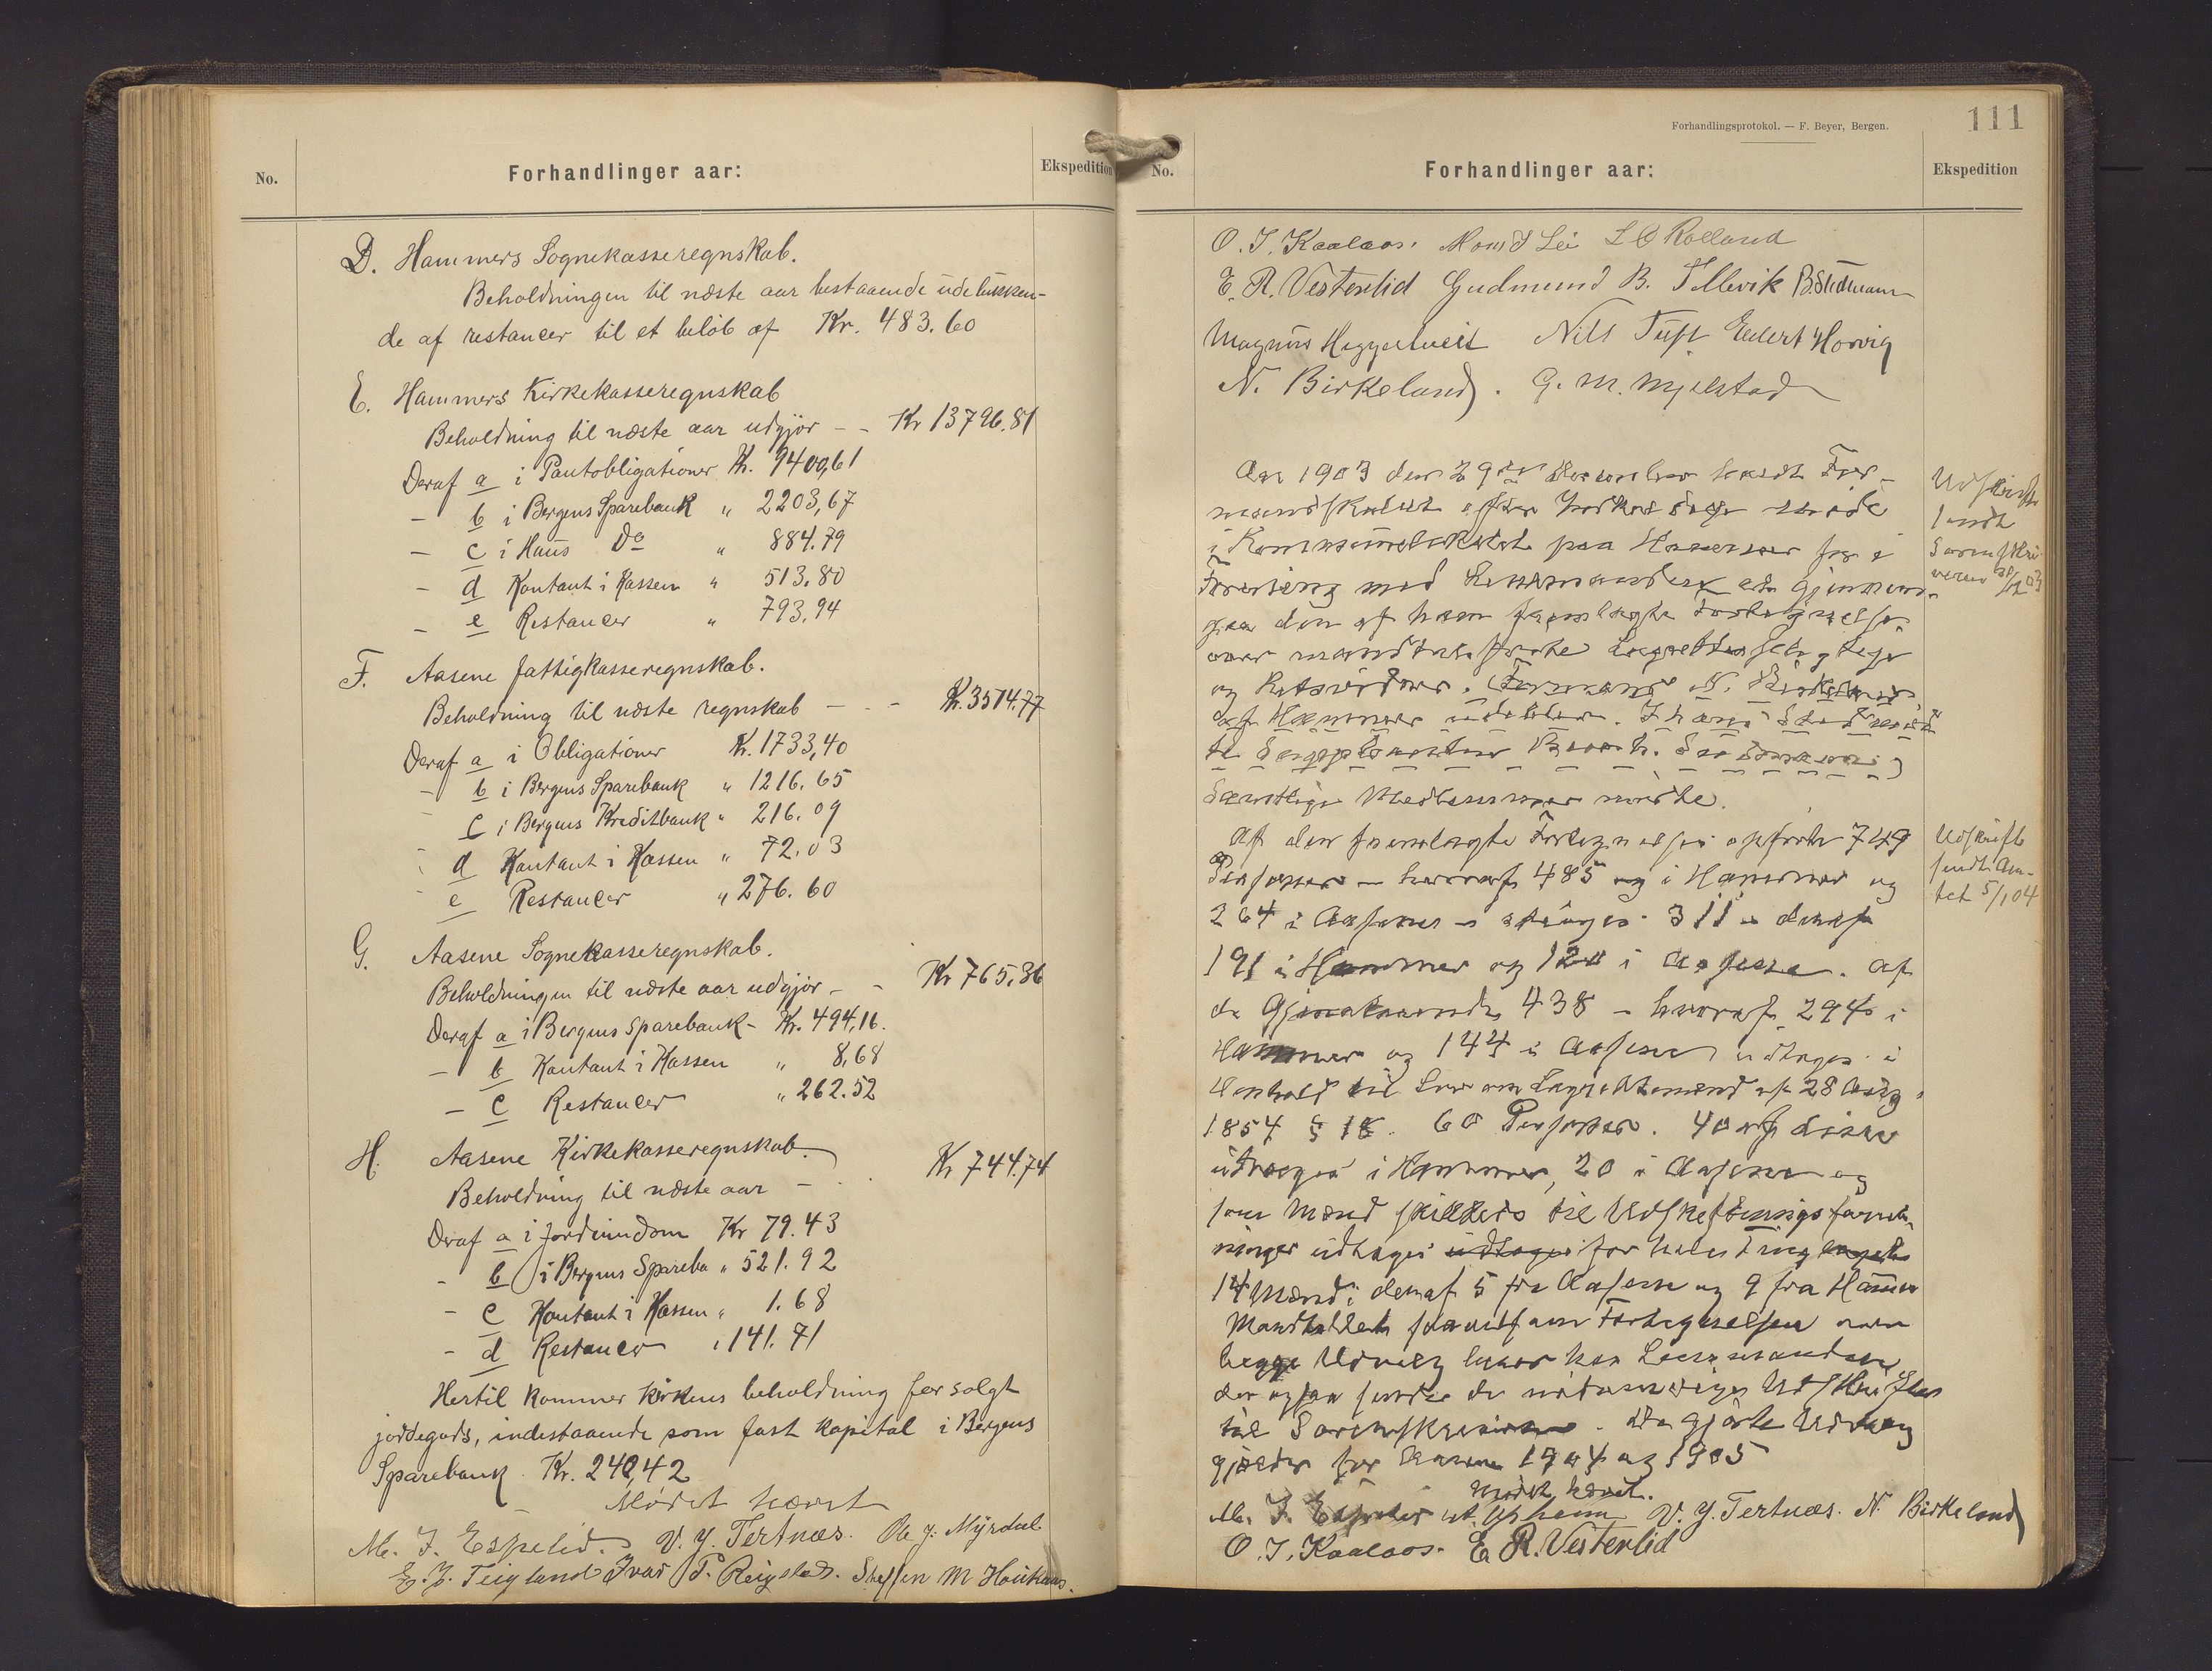 No.
Forhandlinger aar:
Ekspedition
D. Hammers Sognekasseregnskab.
Beholdningen til næste aar bestaaende udelukken-
de af restancer til et beløb af Kr. 483.60
E. Hammers Kirkekasseregnskab
Beholdning til næste aar udgjør - - Kr 13796.81
Deraf a i Pantobligationer Kr. 9400,61
- b i Bergens Sparebank " 2203,67
- c i Haus Do " 884.79
- d Kontant i Kassen " 513.80
- e Restancer " 793,94
F. Aasene fattigkasseregnskab.
Beholdning til næste regnskab - - - Kr. 3514.77
Deraf a i Obligationer Kr. 1733,40
- b i Bergens Sparebank " 1216.65
c i Bergens Kreditbank " 216.09
d Kontant i Kassen " 72.03
e Restancer " 276.60
G. Aasene Sognekasseregnskab.
Beholdningen til næste aar udgjør - - Kr 765,36
Deraf a i Bergens Sparebank - Kr. 494,16.
- b Kontant i Kassen " 8,68
- c Restancer " 262.52
H. Aasene Kirkekasseregnskab.
Beholdning til næste aar - Kr 744.74
Deraf a i Jordeiendom Kr 79.43
- b i Bergens Spareba " 521.92
- c Kontant i Kassen " 1.68
- d Restancer " 141.71
Hertil kommer kirkens beholdning for solgt
jordegods, indestaaende som fast kapital i Bergens
Sparebank Kr. 240,42
Mødet hævet
M. J. Espelid. V. J. Tertnæs. Ole J. Myrdal
E. J. Teigland Ivar P. Reigstad. Steffen M Houkaas.
111
Forhandlingsprotokol. — F. Beyer, Bergen.
No.
Forhandlinger aar:
Ekspedition
O. J. Kaalaas. Mons J Lei L O Rolland
E. R. Vestenlid Gudmund B. Tellevik B. Stedmann
Magnus Heggertveit Nils Tuft Endert Horvig
N. Birkeland. G. M. Mjelstad
Aar 1903 den 29de December holdt For-
mandskabet efter Indkaldelse møde
i Kommunelokalet paa Hammer for i
Forening med Lensmanden at gjennem-
gaa den af ham fremlagte Fortegnelse
over mandtalsførte Lagrettesdygtige
og Retsvidner. Formand N. Birkeland
af Hammer udeblev. I hans Sted mødte
te Suppleanten
Samtlige Medlemmer mødte.
Af den fremlagte Fortegnelse opførte 749
Personer - hvoraf 485 i Hammer og
264 i Aasene - stryges 311 - deraf
191 i Hammer og 120 i Aasene. Af
de Gjenstaaende 438 - hvoraf 294 i
Hammer og 144 i Aasene udtages i
Henhold til Lov om Lagrettemænd af 28 Aug.
1854 § 18. 60 Personer. 40 af disse
udtages i Hammer, 20 i Aasene og
som Mænd skikkede til Udskiftningsforret-
ninger udtages udtages for hele Tinglaget
14 Mænd: deraf 5 fra Aasene og 9 fra Hammer
Mandtallet saavelsom Fortegnelsen over
begge Udvalg beror hos Lensmanden
der ogsaa sender de nødvendige Udskrifter
til Sorenskriveren. De gjorte Udvalg
gjælder for Aarene 1904 og 1905
Mødet hævet.
M. J. Espelid V. J. Tertnæs. N. Birkeland
O. J. Kaalaas. E. R. Vestenlid
Udskrift
sendt
Sorenskri-
veren 30/12 03
Udskrift
sendt Am-
tet 5/1 04